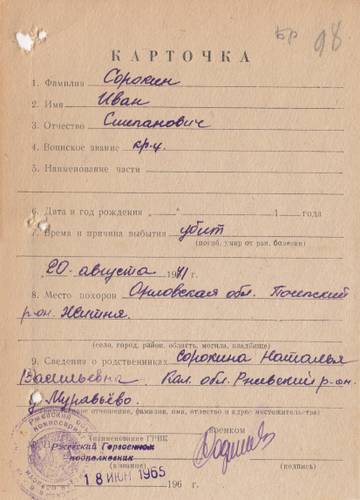 Бр 98
КАРТОЧКА
1. Фамилия Сорокин
2. Имя Иван
3. Отчество Степанович
4. Воинское звание кр-ц
5. Наименование части
6. Дата и год рождения „ “ 1 года
7. Время и причина выбытия убит
(погиб, умер от ран, болезни)
20 августа 1941 г.
8. Место похорон Орловская обл. Почепский
р-он. Житня.
(село, город, район, область, могила, кладбище)
9. Сведения о родственниках Сорокина Наталья
Васильевна. Кал. обл. Ржевский р-он.
д. Муравьёво.
отношение, фамилия, имя, отчество и адрес местожительства)
военком
(наименование ГРВК
Ржевский Горвоенком
подполковник
(звание) (подпись)
18 ИЮН 1965 196 г.